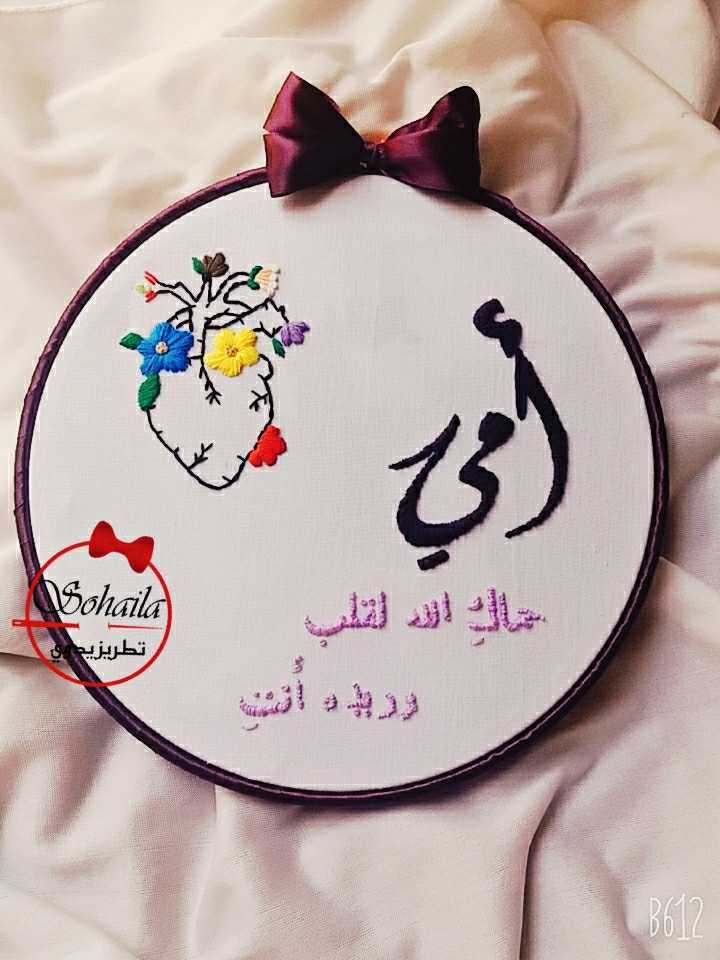 أمي
حماكِ الله لقلبٍ
وريده أنتِ
Sohaila
تطريز يدوي
B612